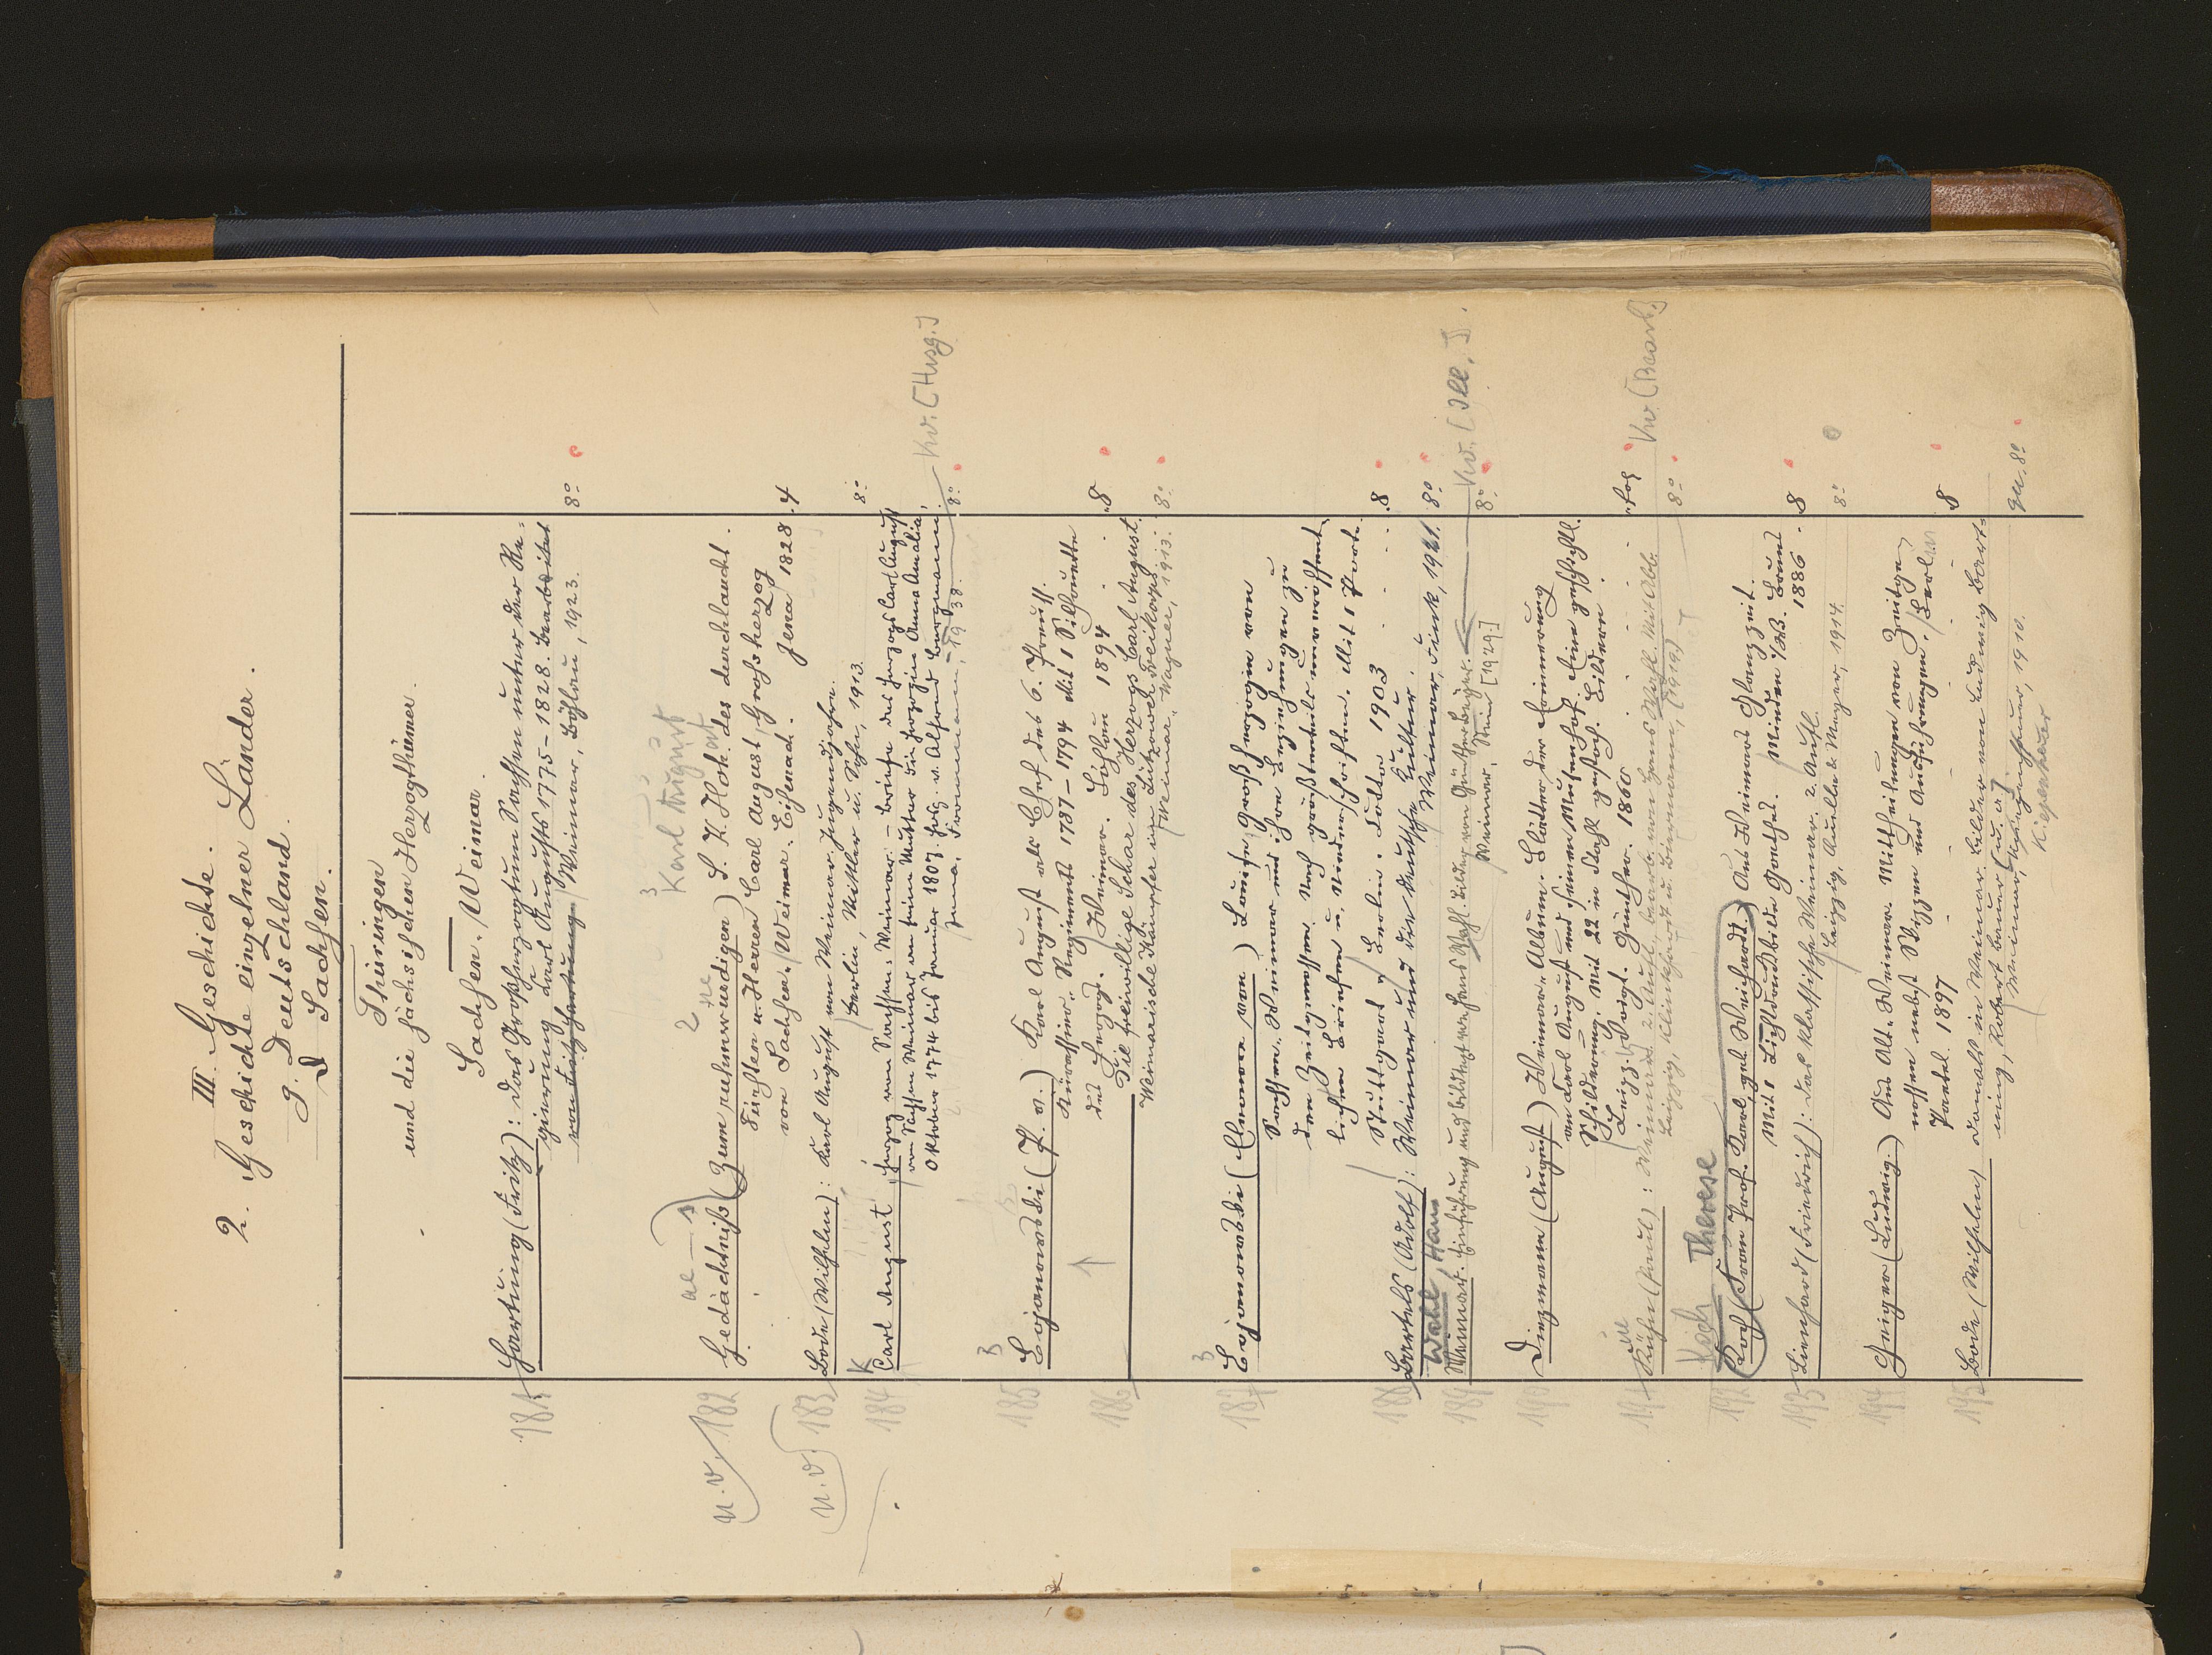 III. Geschichte.
2. Geschichte einzelner Länder.
g. Deutschland.
Sachsen.
Thüringen
und die sächsischen Herzogthümer.
Sachsen-Weimar.
181 Hartung (Fritz): Das Großherzogtum Sachsen unter der Re-
gierung Carl Augusts 1775-1828. Bearbeitet
von Fritz Hartung. Weimar, Böhlau, 1923. 8°
Karl August
n.v. 182 Gedächtniß (Zum ruhmwürdigen) S. K. Hoh. des durchlaucht.
Fürsten u. Herren, Carl August, Großherzog
von Sachsen-Weimar-Eisenach. Jena 1828. 4
n.v. 183 Bode (Wilhelm): Karl August von Weimar. Jugendjahre.
Berlin, Mittler u. Sohn, 1913. 8°
184 Carl August, Herzog von Sachsen-Weimar: Briefe des Herzogs Carl August
von Sachsen-Weimar an seine Mutter die Herzogin Anna Amalia,
Oktober 1774 bis Januar 1807. Hrsg. v. Alfred Bergmann.
Jena, Frommann, 1938. 8° Kv. [Hrsg.]
185 Bojanowski (P. v.) Karl August als Chef des 6. Preuß.
Kürassier-Regiments 1787-1794 Mit 1 Silhouette
des Herzogs. Weimar. Böhlau 1894 8
186 Die freiwillige Schar des Herzogs Carl August.
Weimarische Kämpfer im Lützower Freikorps.
Weimar, Wagner, 1913. 8°
187 Bojanowski (Eleonore von) Louise Großherzogin von
Sachsen-Weimar und ihre Beziehungen zu
den Zeitgenossen. Nach größtenteils unveröffent-
lichen Briefen u. Niederschriften. Mit 1 Portr.
Stuttgart & Berlin. Cotta 1903 8
188 Bartels (Adolf): Weimar und die deutsche Kultur.
Weimar, Fink, 1921. 8°
Wahl, Hans
189 Weimar. Einführung und Bildtext von Hans Wahl. Bilder von Günther Beyer. Kv. [Ill.].
Weimar, [1929] 8°
190 Diezmann (August) Weimar-Album. Blätter der Erinnerung
an Carl August und seinen Musenhof. Eine geschichtl.
Schilderung. Mit 22 in Stahl gestoch. Bildern.
Leipz. Voigt & Günther. 1860 fol
191 Kühn (Paul): Weimar. 2. Aufl., bearb. von Hans Wahl. Mit Abb.
Leipzig, Klinkhardt u. Biermann, (1919) 8° Kv. [Bearb.]
Koch Therese
192 Koch (Frau Prof. Carl, geb. Weichardt) Aus Weimars Glanzzeit.
Mit 1 Lichtdruckbilde Goethes. Minden i/W. Bruns 1886 8
193 Lienhard (Friedrich): Das klassische Weimar. 2. Aufl.
Leipzig, Quelle & Meyer, 1914. 8°
194 Geiger (Ludwig.) Aus Alt-Weimar. Mittheilungen von Zeitge-
nossen nebst Skizzen und Ausführungen. Berlin
Paetel. 1897 8
195 Bode (Wilhelm) Damals in Weimar. Bilder von Ludwig Bart-
ning, Robert Baur [u. a.]
Weimar, Kiepenheuer, 1910. qu.-8°
Kiepenheuer